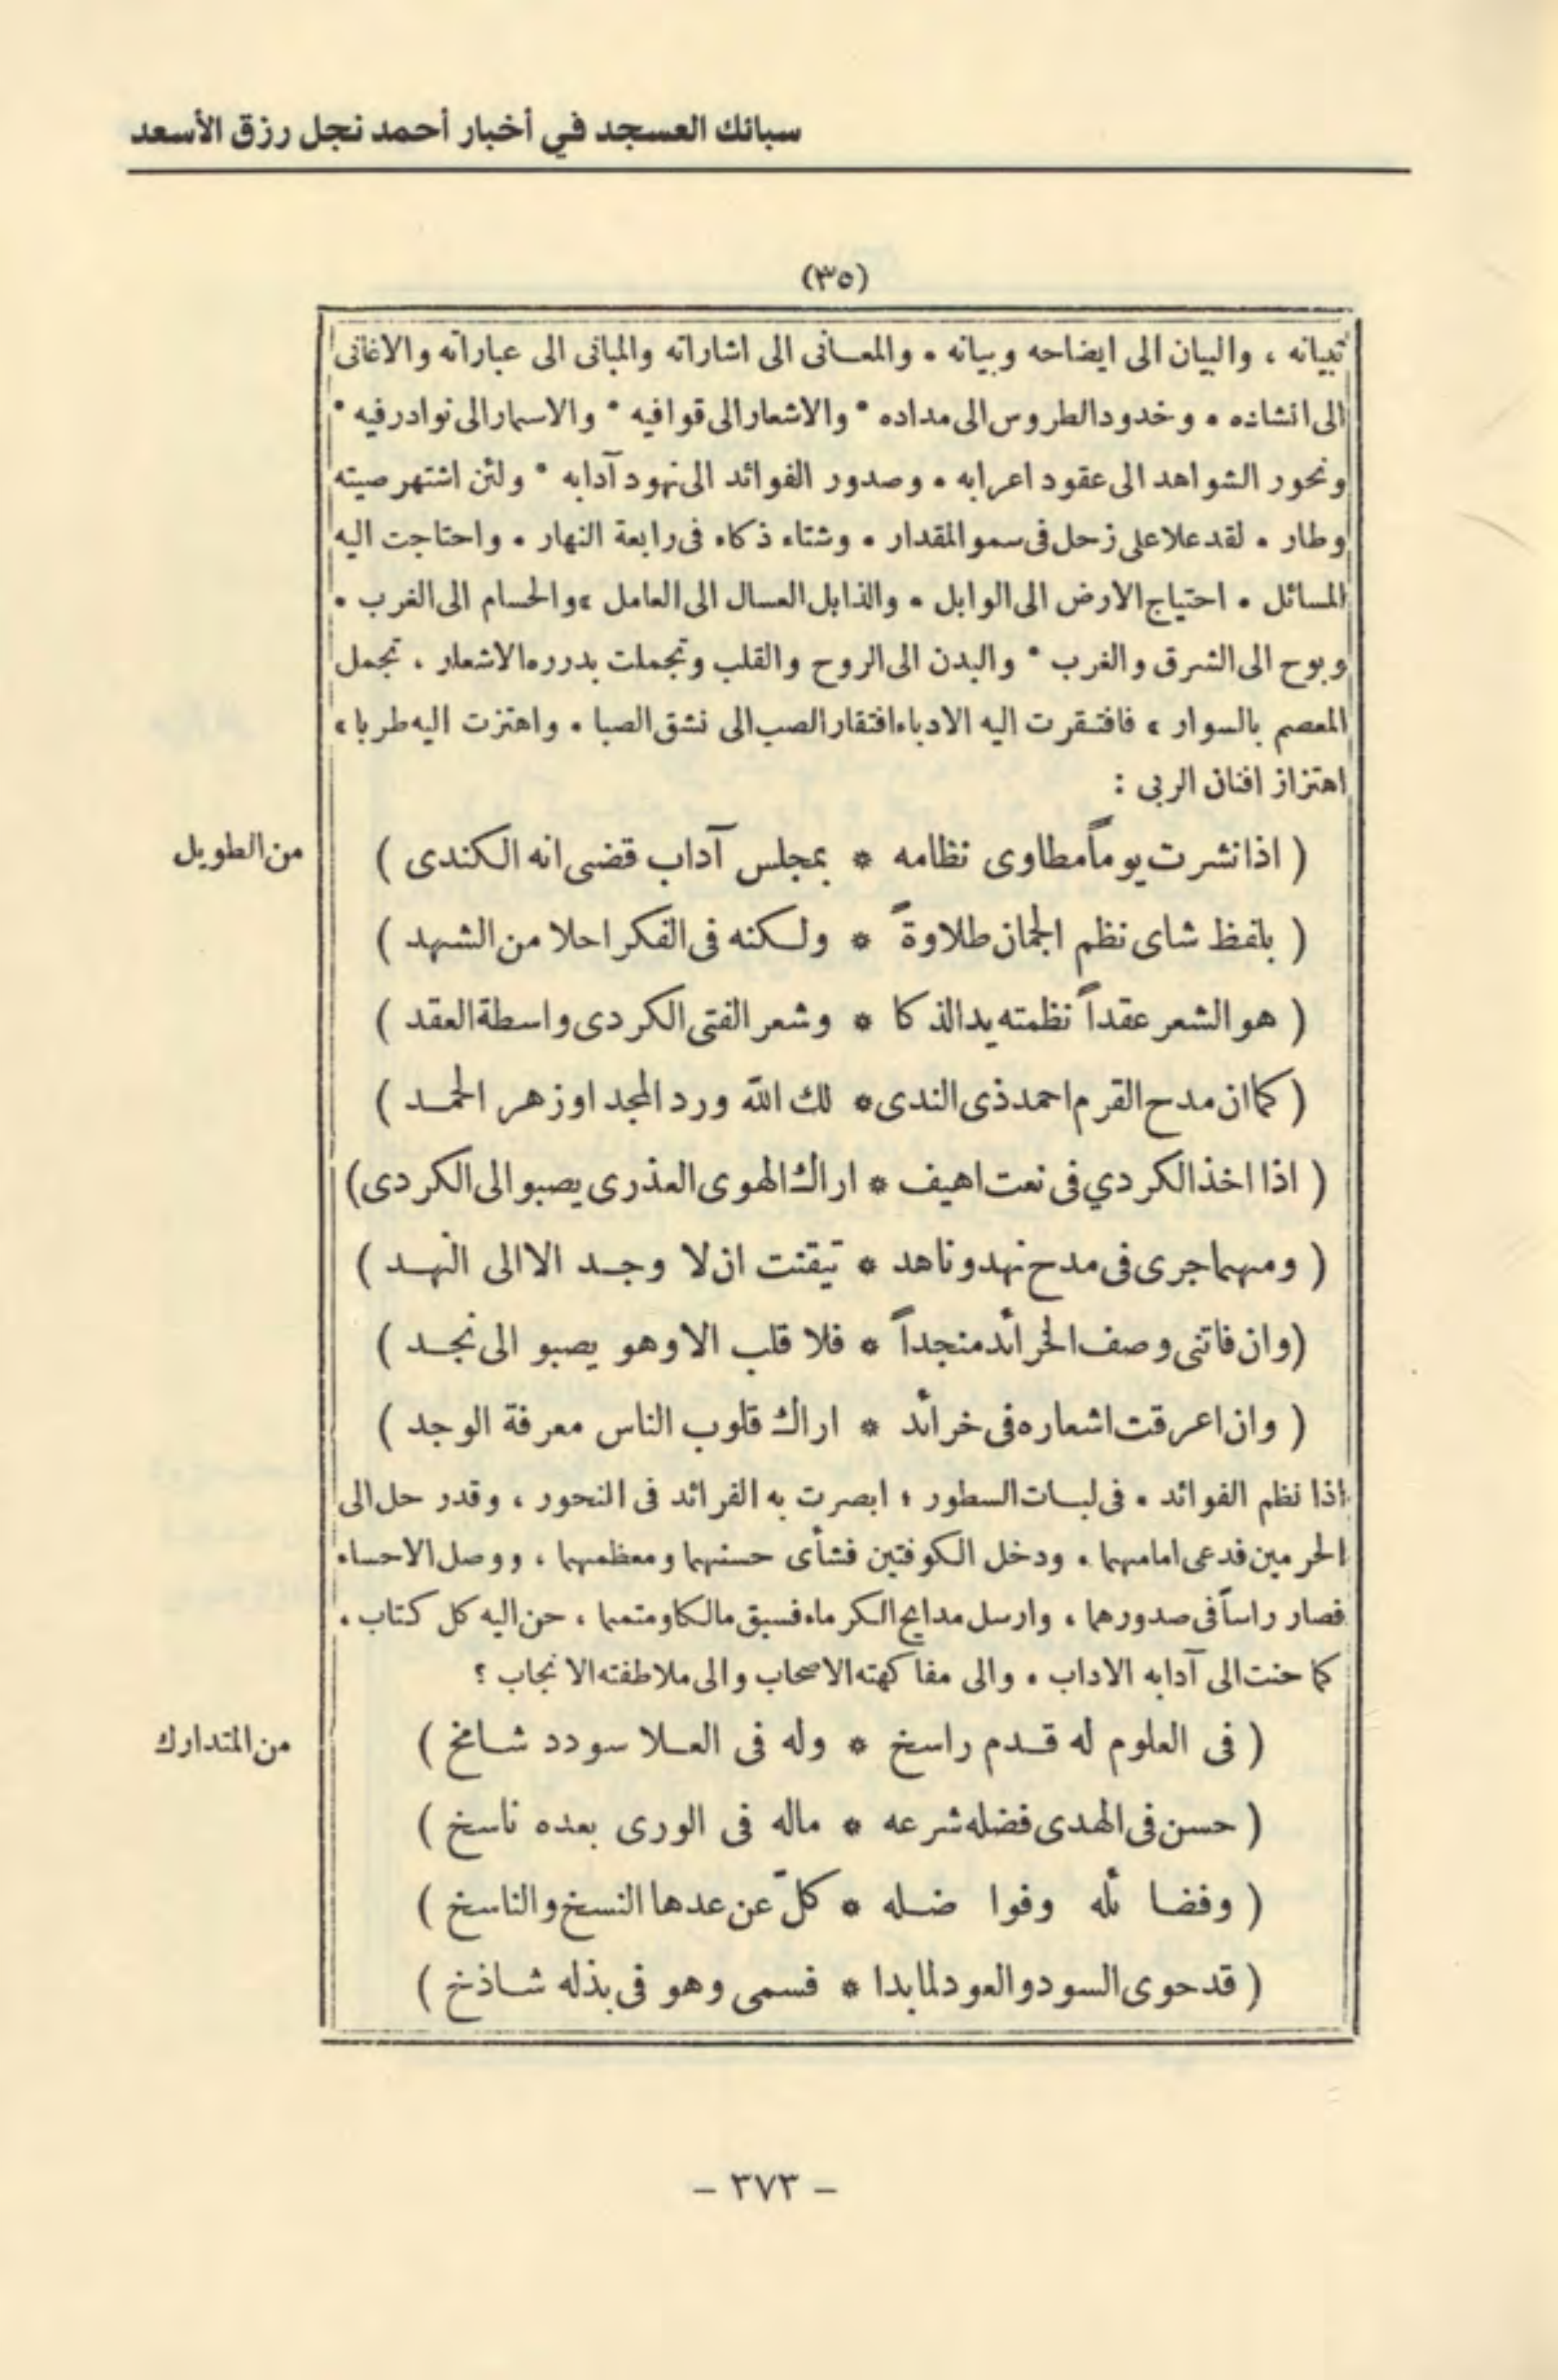 سبائك العسجد في أخبار أحمد نجل رزق الأسعد
(٣٥)
تبيانه ، والبيان الى ايضاحه وبيانه • والمعانى الى اشاراته والمبانى الى عباراته والاغانى
الى انشاده • وخدود الطروس الى مداده • والاشعار الى قوافيه • والاسمار الى نوادر فيه •
ونحور الشواهد الى عقود اعرابه • وصدور الفوائد الى نهود آدابه • ولئن اشتهر صيته
وطار • لقد علا على زحل فى سمو المقدار • وشتاء ذكاء فى رابعة النهار • واحتاجت اليه
المسائل • احتياج الارض الى الوابل • والذابل العسال الى العامل ، والحسام الى الغرب •
وبوح الى الشرق والغرب • والبدن الى الروح والقلب وتجملت بدرره الاشعار ، تجمل
المعصم بالسوار ، فافتقرت اليه الادباء افتقار الصب الى نشق الصبا • واهتزت اليه طربا ،
اهتزاز افنان الربى :
من الطويل
( اذا نشرت يوماً مطاوى نظامه * بمجلس آداب قضى انه الكندى )
( بلفظ شاى نظم الجمان طلاوةً * ولكنه فى الفكر احلا من الشهد )
( هو الشعر عقداً نظمته يد الذكا * وشعر الفتى الكردى واسطة العقد )
( كما ان مدح القرم احمد ذى الندى * لك الله ورد المجد او زهر الحمد )
( اذا اخذ الكردي فى نعت اهيف * اراك الهوى العذرى يصبو الى الكردى )
( ومهما جرى فى مدح نهد وناهد * تيقنت ان لا وجد الا الى النهد )
( وان فاتنى وصف الخرائد منجداً * فلا قلب الا وهو يصبو الى نجد )
( وان اعرقت اشعاره فى خرائد * اراك قلوب الناس معرفة الوجد )
اذا نظم الفوائد • فى لبات السطور ؛ ابصرت به الفرائد فى النحور ، وقد رحل الى
الحرمين فدعى امامهما • ودخل الكوفتين فشأى حسنهما ومعظمهما ، ووصل الاحساء
فصار راساً فى صدورهما ، وارسل مدايح الكرماء فسبق مالكا ومتمما ، حن اليه كل كتاب ،
كما حنت الى آدابه الاداب • والى مفاكهته الاصحاب والى ملاطفته الانجاب ؟
من المتدارك
( فى العلوم له قدم راسخ * وله فى العلا سودد شامخ )
( حسن فى الهدى فضله شرعه * ماله فى الورى بعده ناسخ )
( وفضا ئله وفوا ضله * كلّ عن عدها النسخ والناسخ )
( قد حوى السود والعود لما بدا * فسمى وهو فى بذله شاذخ )
– ٣٧٣ –